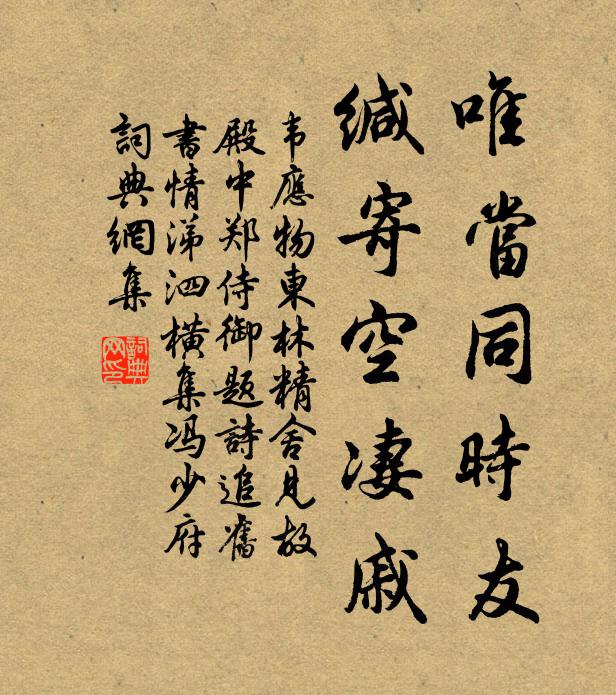 唯當同時友
緘寄空淒戚
韦應物東林精舍見故
殿中郑侍御题詩追舊
書情涕泗橫集冯少府
詞典網集
詞典
网印